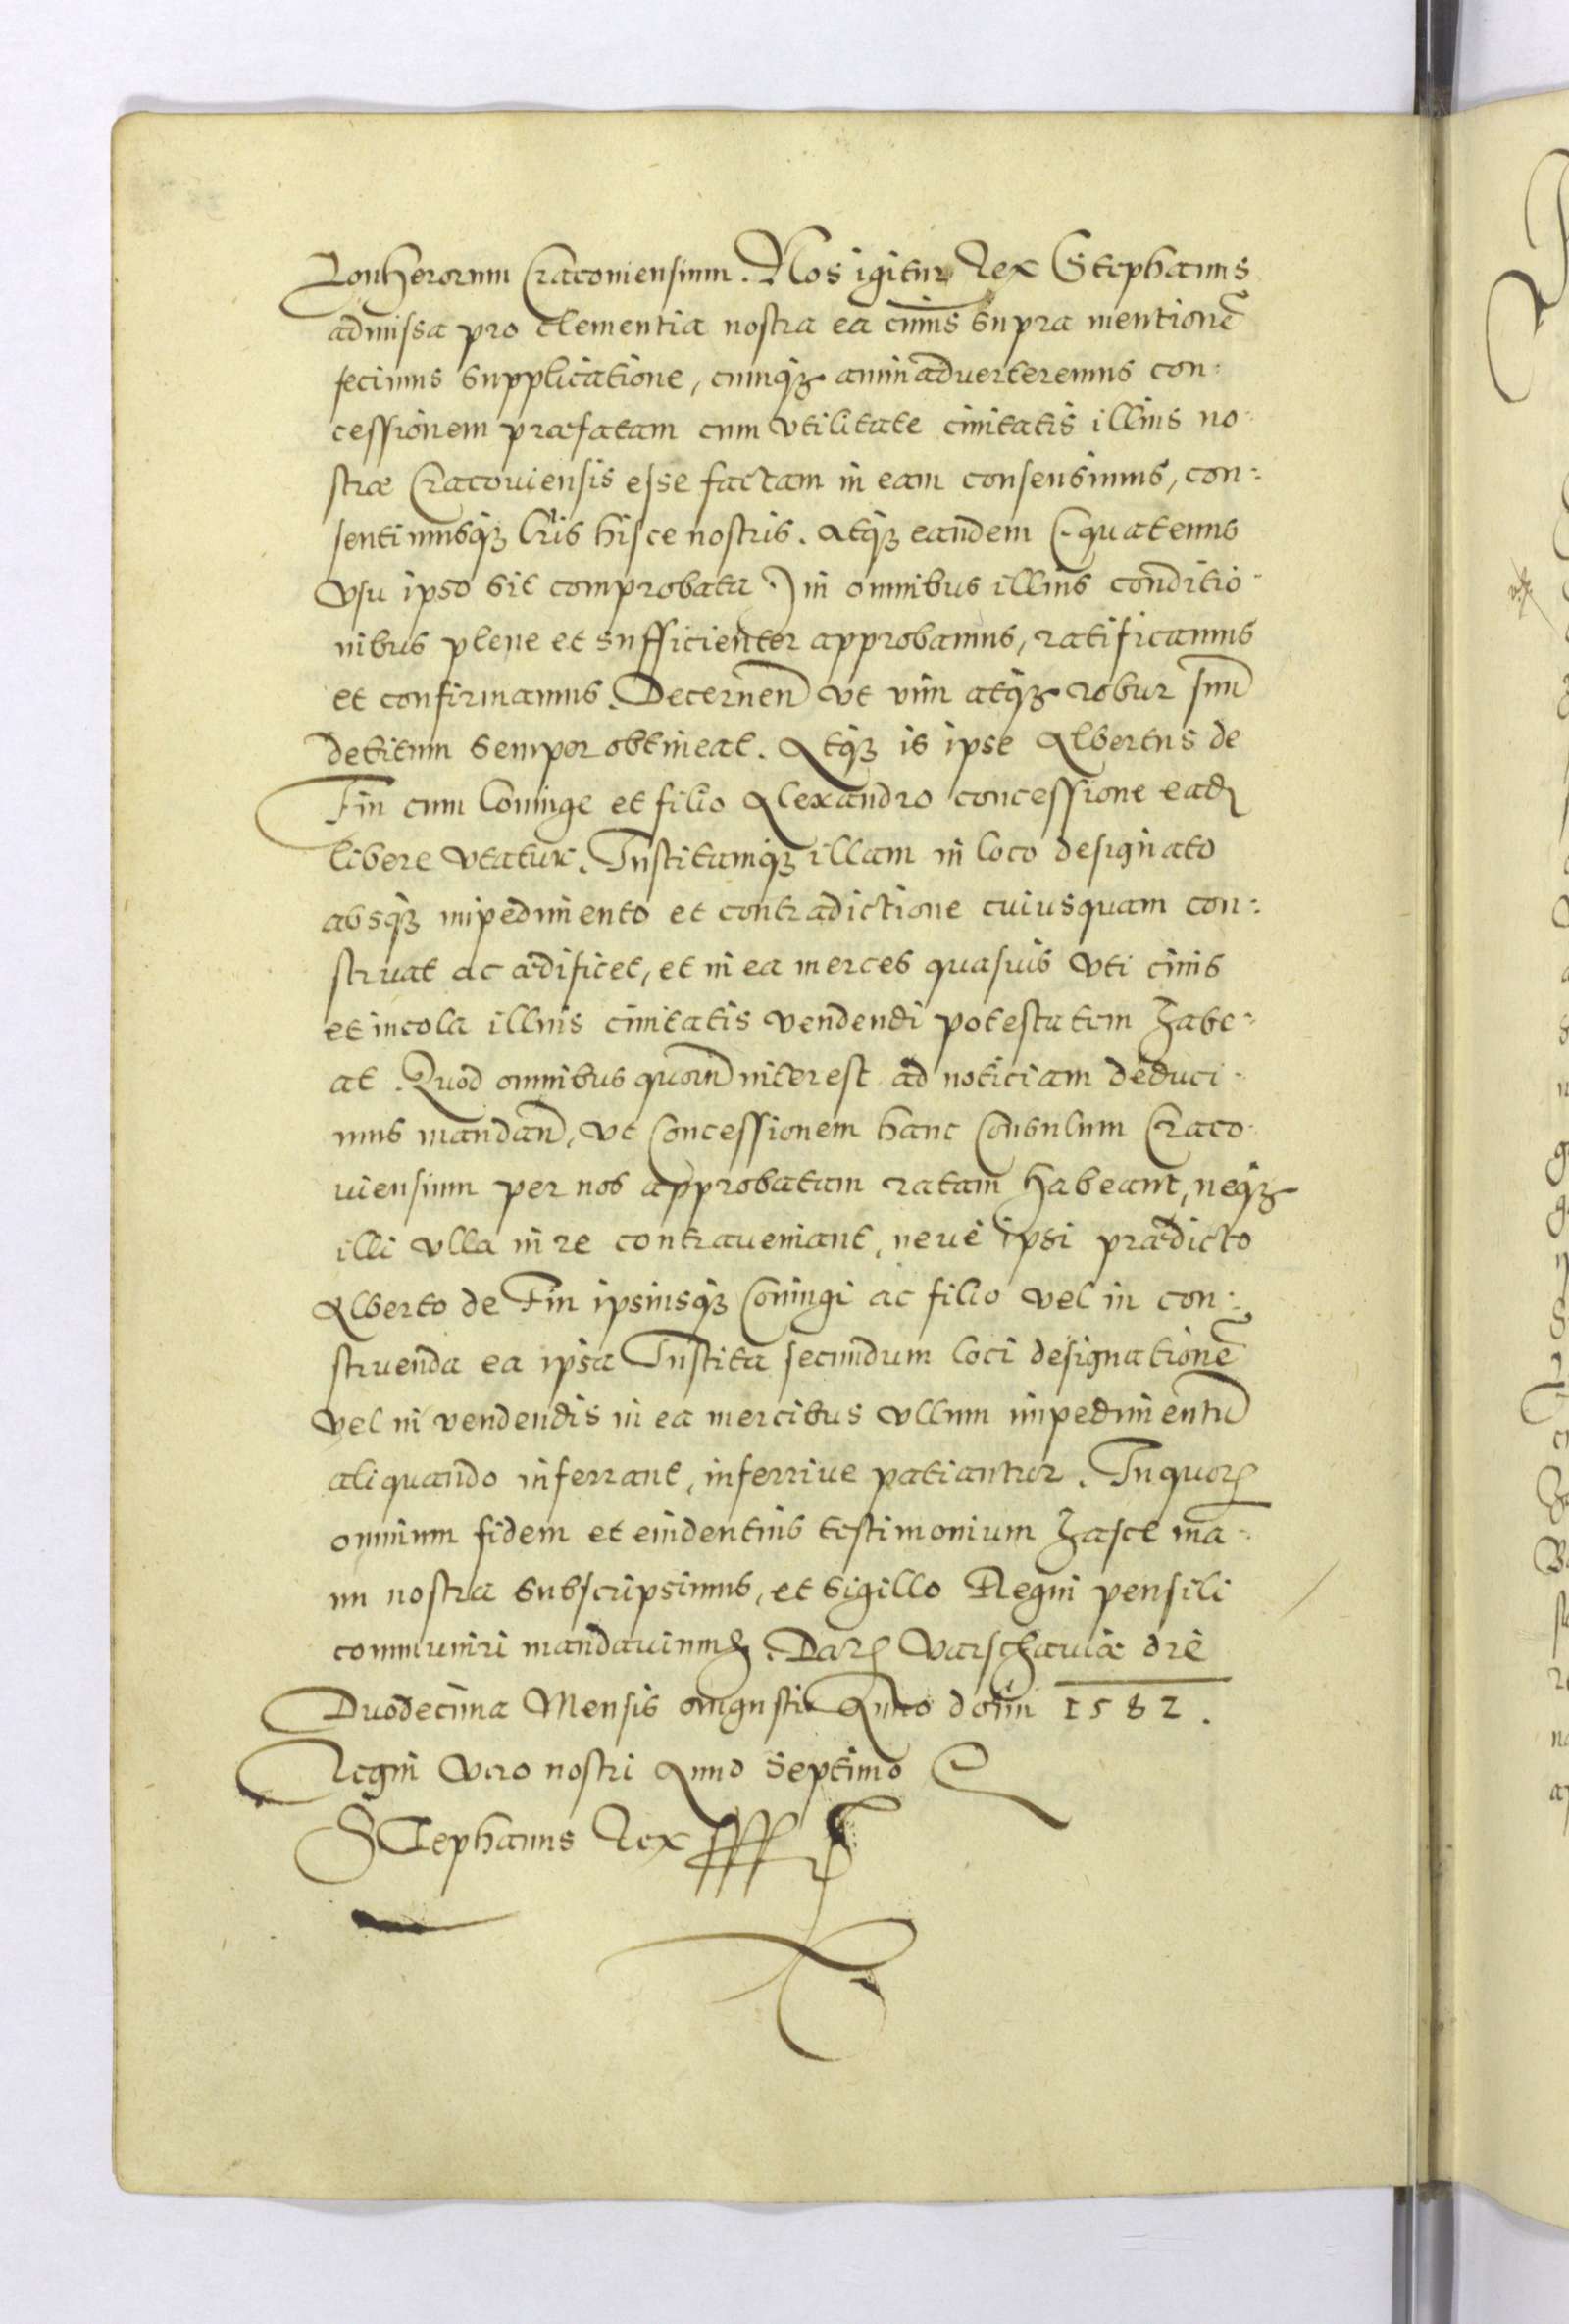 Lonherorum Cracouiensium. Nos igitur Rex Stephanus
admissa pro clementia nostra ea cuius supra mentionē
fecimus supplicatione, cumqꝫ animaduerteremus con:
cessionem præfatam cum vtilitate ciuitatis illius no:
stræ Cracouiensis esse factam in eam consensimus, con:
sentimusqꝫ lr̄is hisce nostris. Atqꝫ eandem (quatenus
vsu ipso sit comprobata) in omnibus illius conditio:
nibus plene et sufficienter approbamus, ratificamus
et confirmamus. Decernen̄ vt vim atqꝫ robur suū
debitum semper obtineat. Atqꝫ is ipse Albertus de
Fin cum Coniuge et filio Alexandro concessione eadꝫ
libere vtatur. Institamqꝫ illam in loco designato
absqꝫ impedimento et contradictione cuiusquam con:
struat ac ædificet, et in ea merces quasuis vti ciuis
et incola illius ciuitatis vendendi potestatem habe:
at. Quod omnibus quorū interest ad noticiam deduci:
mus mandan̄, vt Concessionem hanc Consulum Craco:
uiensium per nos approbatam ratam habeant, neqꝫ
illi vlla in re contraueniant, neue ipsi prædicto
Alberto de Fin ipsiusqꝫ Coniugi ac filio vel in con:
struenda ea ipsa Instita secundum loci designationē
vel in vendendis in ea mercibus vllum impedimentū
aliquando inferrant, inferriue patiantur. In quorꝫ
omnium fidem et euidentius testimonium hasce ma:
nu nostra subscripsimus, et sigillo Regni pensili
communiri mandauimus. Datꝫ Varschauiæ die
Duodecima Mensis augusti Anno domī 1582.
Regni vero nostri Anno septimo
Stephanus Rex